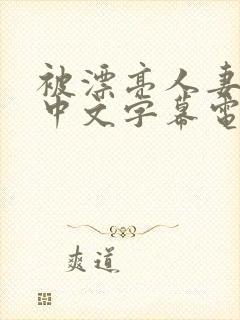 被漂亮人妻
中文字幕電
爽道